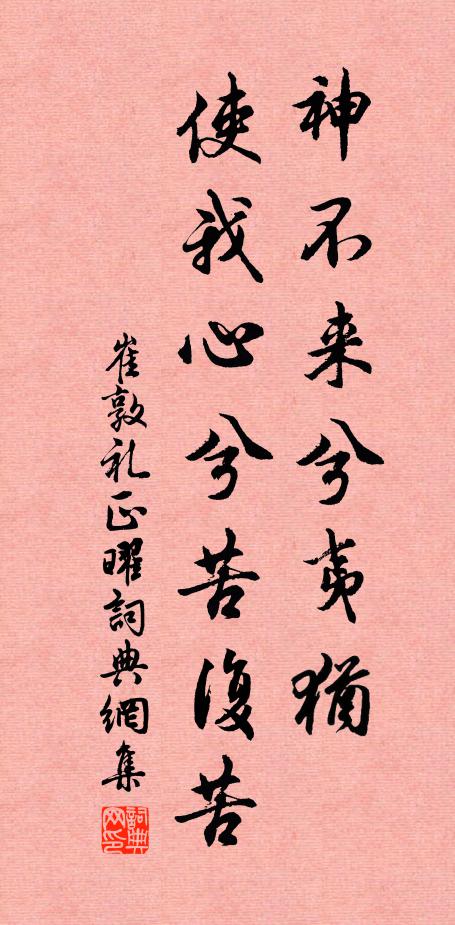 神不来兮夷猶
使我心兮苦復苦
崔敦礼正曜詞典網集
詞典网印